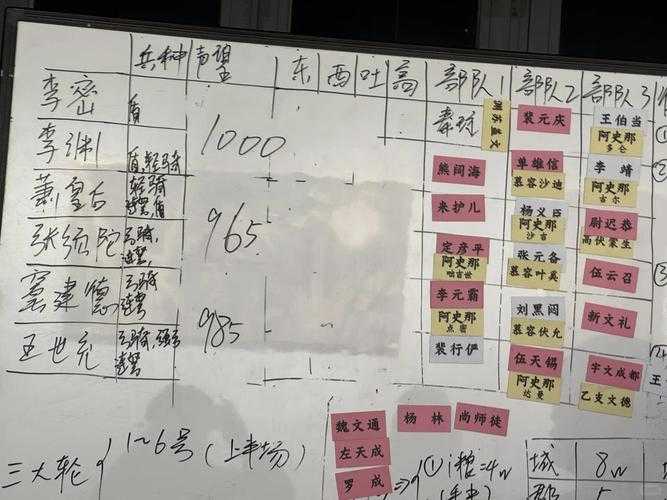 兵种 声望 东 西 吐 高 部队1 部队2 部队3
李密 盾
李渊 盾,轻骑
1000
萧皇后 轻骑
连弩,盾
张须陀 弓骑,
连弩
965
窦建德 弓骑
连弩
王世充 弓骑,
连弩
985
秦琼
渊苏盖文
裴元庆
王伯当
阿史那
多仑
熊阔海
单雄信
慕容沙迪
李靖
阿史那
吉尔
来护儿
杨义臣
阿史那
沙吉
尉迟恭
高伏蒙生
定彦平
阿史那
咄吉世
张元备
慕容叶奚
伍云召
李元霸
阿史那
点密
刘黑闼
慕容伏允
新文礼
裴行俨
伍天锡
阿史那
达曼
宇文成都
乙支文德
王
魏文通 杨林 尚师徒
左天成
罗成
三大轮 1~6号(上半场)
①1粮=4w
城 8w
郡